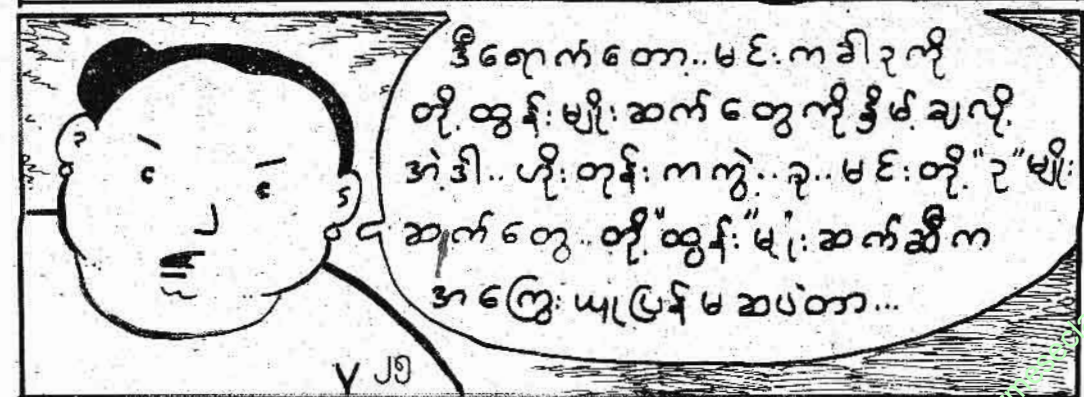 ဒီရောက်တော့..မင်းကခါဥကို
တို့ထွန်းမျိုးဆက်တွေကိုနှိမ့်ချလို့
အဲ့ဒါ..ဟိုးတုန်းကကွဲ့..ခု..မင်းတို့"ဥ"မျိုး
ဆက်တွေ..တို့"ထွန်း"မျိုးဆက်ဆီက
အကြွေးယူပြန်မဆပ်တာ...
၂၅